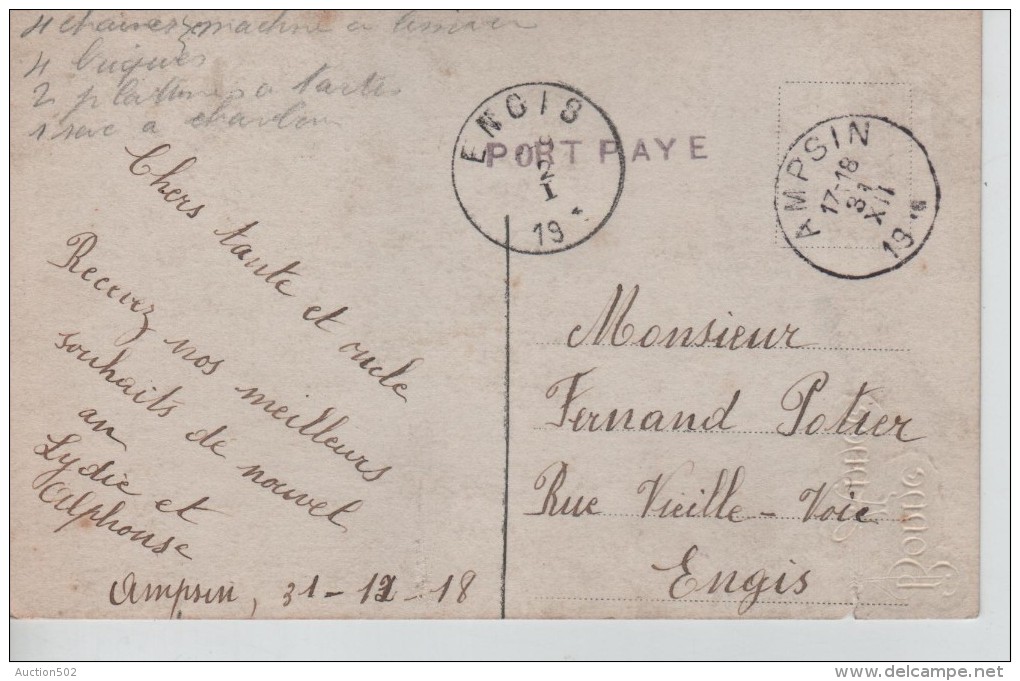 4 chaines machine a
4 briques
2 platines a tartes
1 sac a charbon
Chers tante et oncle
Recevez nos meilleurs
souhaits de nouvel
an
Lydie et
Alphonse
Ampsin, 31-12-18
ENGIS
2
I
19
PORT PAYE
AMPSIN
17-18
31
XII
19
Monsieur
Fernand Potier
Rue Vieille-Voie
Engis
Auction502
delcampe.net